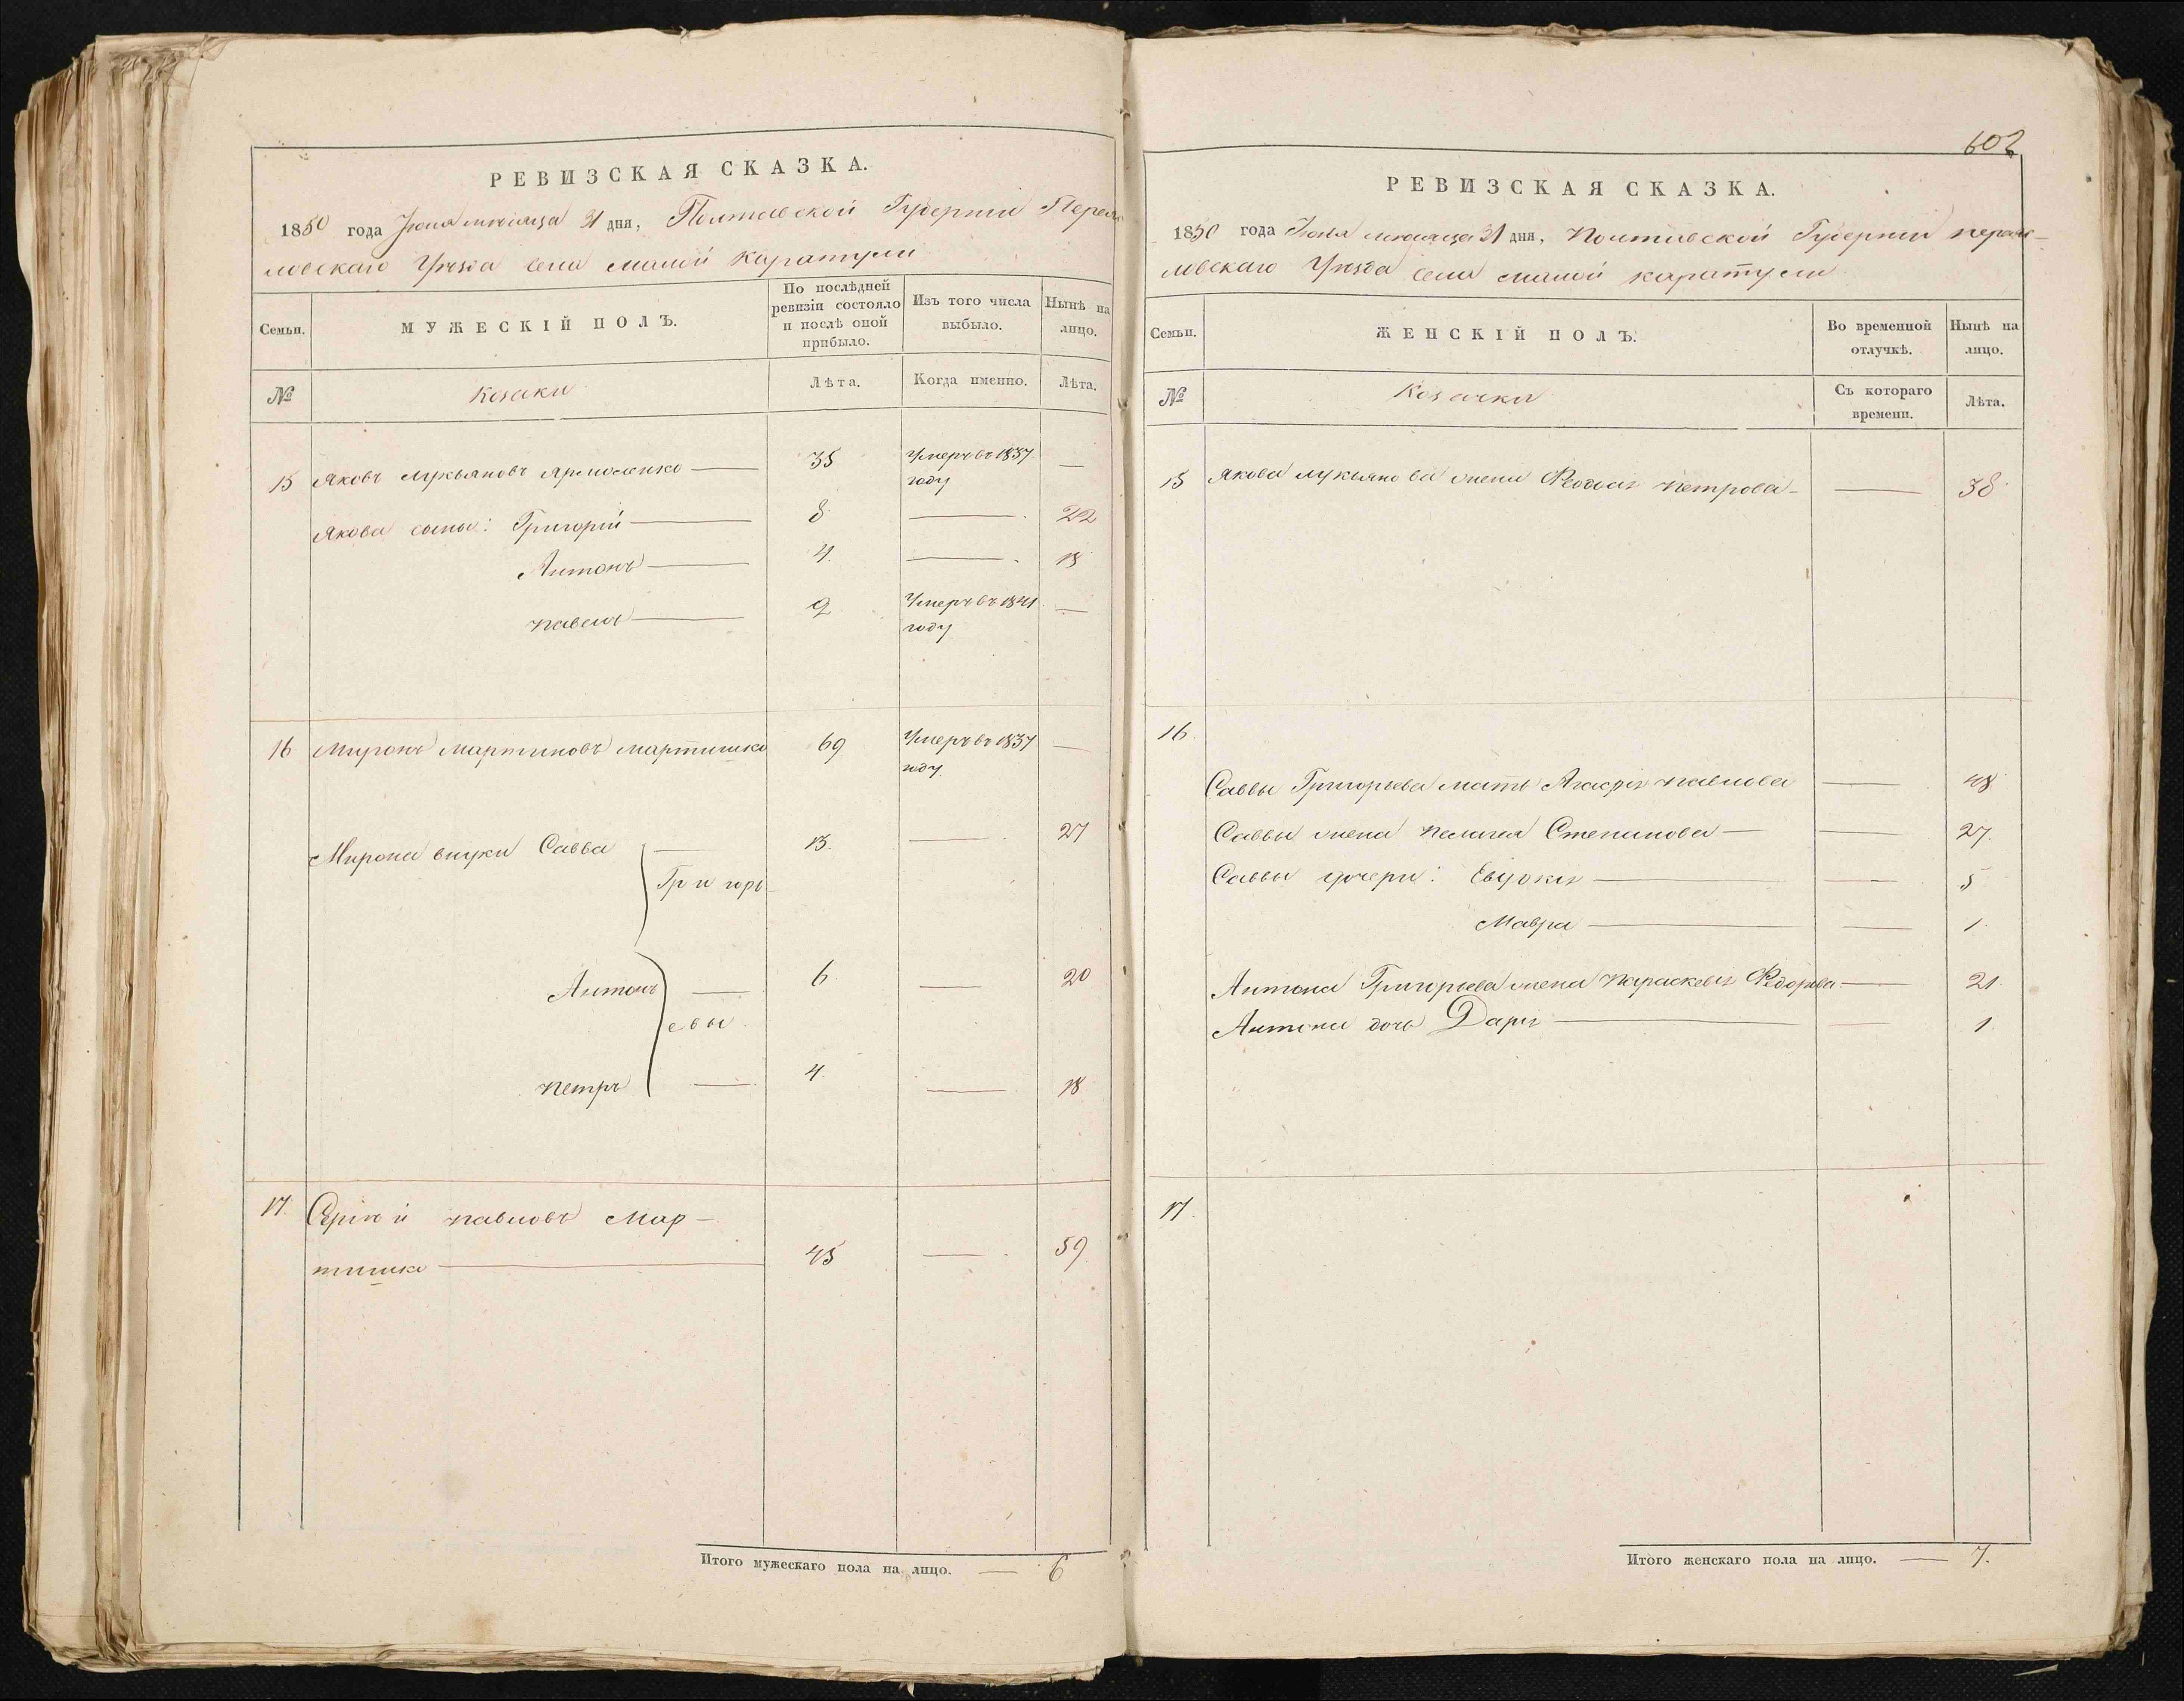 РЕВИЗСКАЯ СКАЗКА.
1850 года Іюня мѣсяца 31 дня, Полтавской Губерніи Переяс
ловскаго Уѣзда села малой каратули
Семьи.
МУЖЕСКІЙ ПОЛЪ.
По послѣдней ревизіи состояло и послѣ оной прибыло.
Изъ того числа выбыло.
Нынѣ на лицо.
№
Козаки
Лѣта.
Когда именно.
Лѣта.
15 Яковъ Лукьяновъ Ярмоленко — 35 Умеръ въ 1837 —
году
Якова сыны: Григорій — 8 — 22
Антонъ — 4. — 18
павелъ — 2 Умеръ въ 1841 —
году
16 Миронъ Мартиновъ мартишко 69 Умеръ въ 1837 —
году.
Мирона внуки Савва — 13. — 27
Григорь
Антонъ — 6 — 20
евы
петръ — 4. — 18
17. Сергій павловъ Мар-
тишко — 45 — 59
Итого мужескаго пола на лицо. — 6
602
РЕВИЗСКАЯ СКАЗКА.
1850 года Іюня мѣсяца 31 дня, полтавской Губерніи переяс-
ловскаго Уѣзда села малой каратули
Семьи.
ЖЕНСКІЙ ПОЛЪ.
Во временной отлучкѣ.
Нынѣ на лицо.
№
Козачки
Съ котораго времени.
Лѣта.
15 Якова лукьянова жена петрова — — 38
16.
Саввы Григорьева мать павлова — 48
Саввы жена Степанова — — 27.
Саввы дочери: Евдокия — — 5
Мавра — — 1.
Антона Григорьева жена параскевия Федорова — 21.
Антона дочь Дария — — 1
17.
Итого женскаго пола на лицо. — 7.